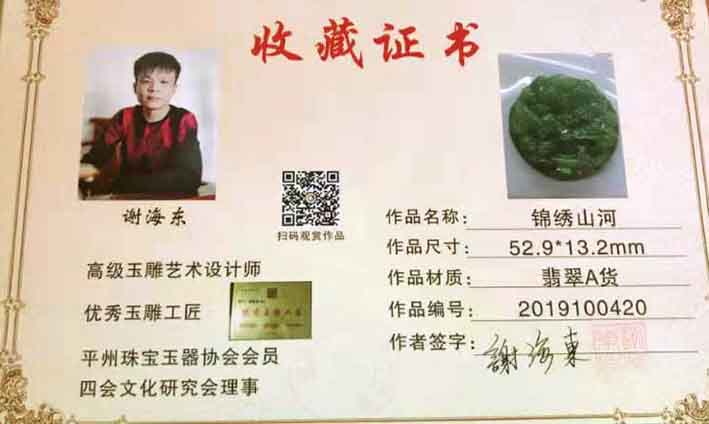 收藏证书
谢海东
扫码观赏作品
高级玉雕艺术设计师
优秀玉雕工匠
平州珠宝玉器协会会员
四会文化研究会理事
作品名称：锦绣山河
作品尺寸：52.9*13.2mm
作品材质：翡翠A货
作品编号：2019100420
作者签字：謝海東